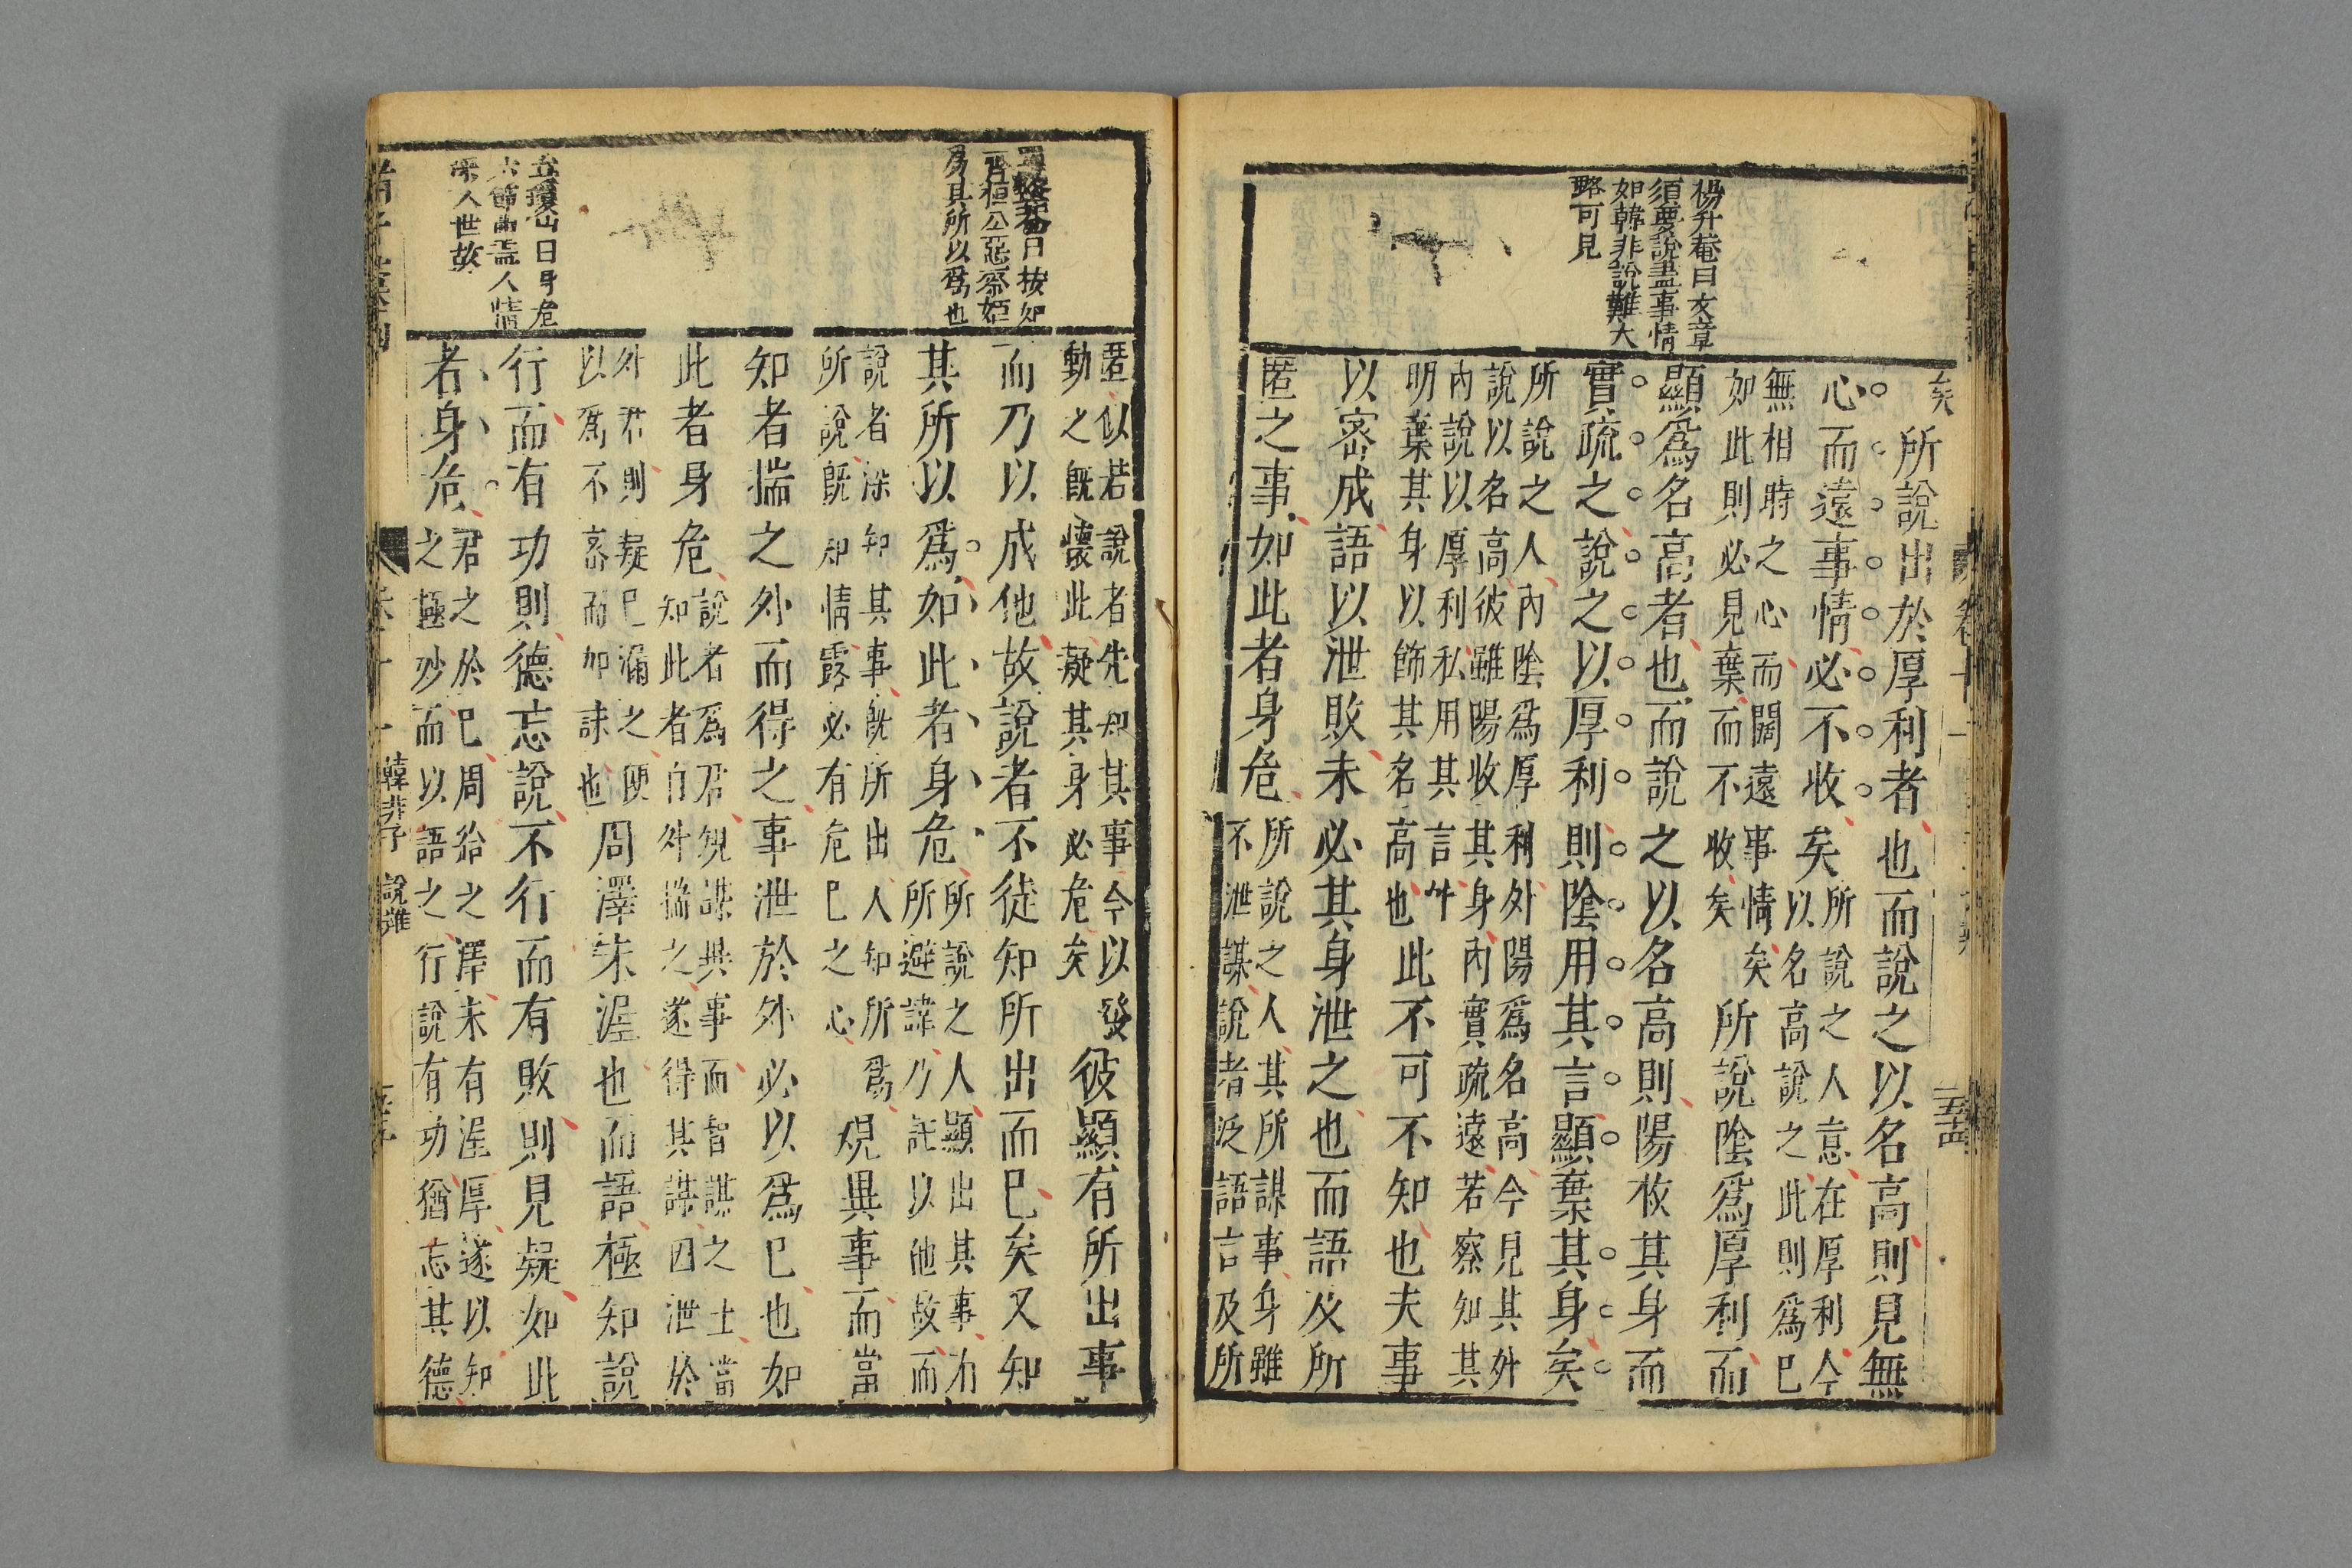 楊升菴曰文章
須要說盡事情
如韓非說難大
略可見
矣所說出於厚利者也而說之以名高則見無
心而遠事情必不收矣所說之人意在厚利今
以名高說之此則爲巳
無相時之心而闊遠事情矣
如此則必見棄而不收矣所說陰爲厚利而
顯爲名高者也而說之以名高則陽收其身而
實疏之說之以厚利則陰用其言顯棄其身矣
所說之人內陰爲厚利外陽爲名高今見其外
說以名高彼雖陽收其身內實疏遠若察知其
內說以厚利私用其言外
明棄其身以飾其名高也此不可不知也夫事
以密成語以泄敗未必其身泄之也而語及所
匿之事如此者身危所說之人其所謀事身雖
不泄謀說者泛語言及所
五十四
日按如
齊桓公惡蔡姬
爲其所以爲也
丘瓊山曰身危
人情
人世故
匿似若說者先知其事今以發
動之旣懷此疑其身必危矣彼顯有所出事
而乃以成他故說者不徒知所出而巳矣又知
其所以爲如此者身危所說之人顯出其事有
所避諱乃託以他故而
說者深知其事旣所出人知所爲
所說旣知情露必有危巳之心規異事而當
知者揣之外而得之事泄於外必以爲巳也如
此者身危說者爲君規謀異事而智謀之士當
知此者自外揣之遂得其謀因泄於
外君則疑巳漏之便
以爲不密而加誅也周澤未渥也而語極知說
行而有功則德忘說不行而有敗則見疑如此
者身危君之於巳周給之澤未有渥厚遂以知
之極妙而以語之行說有功猶忘其德
韓非子 說難